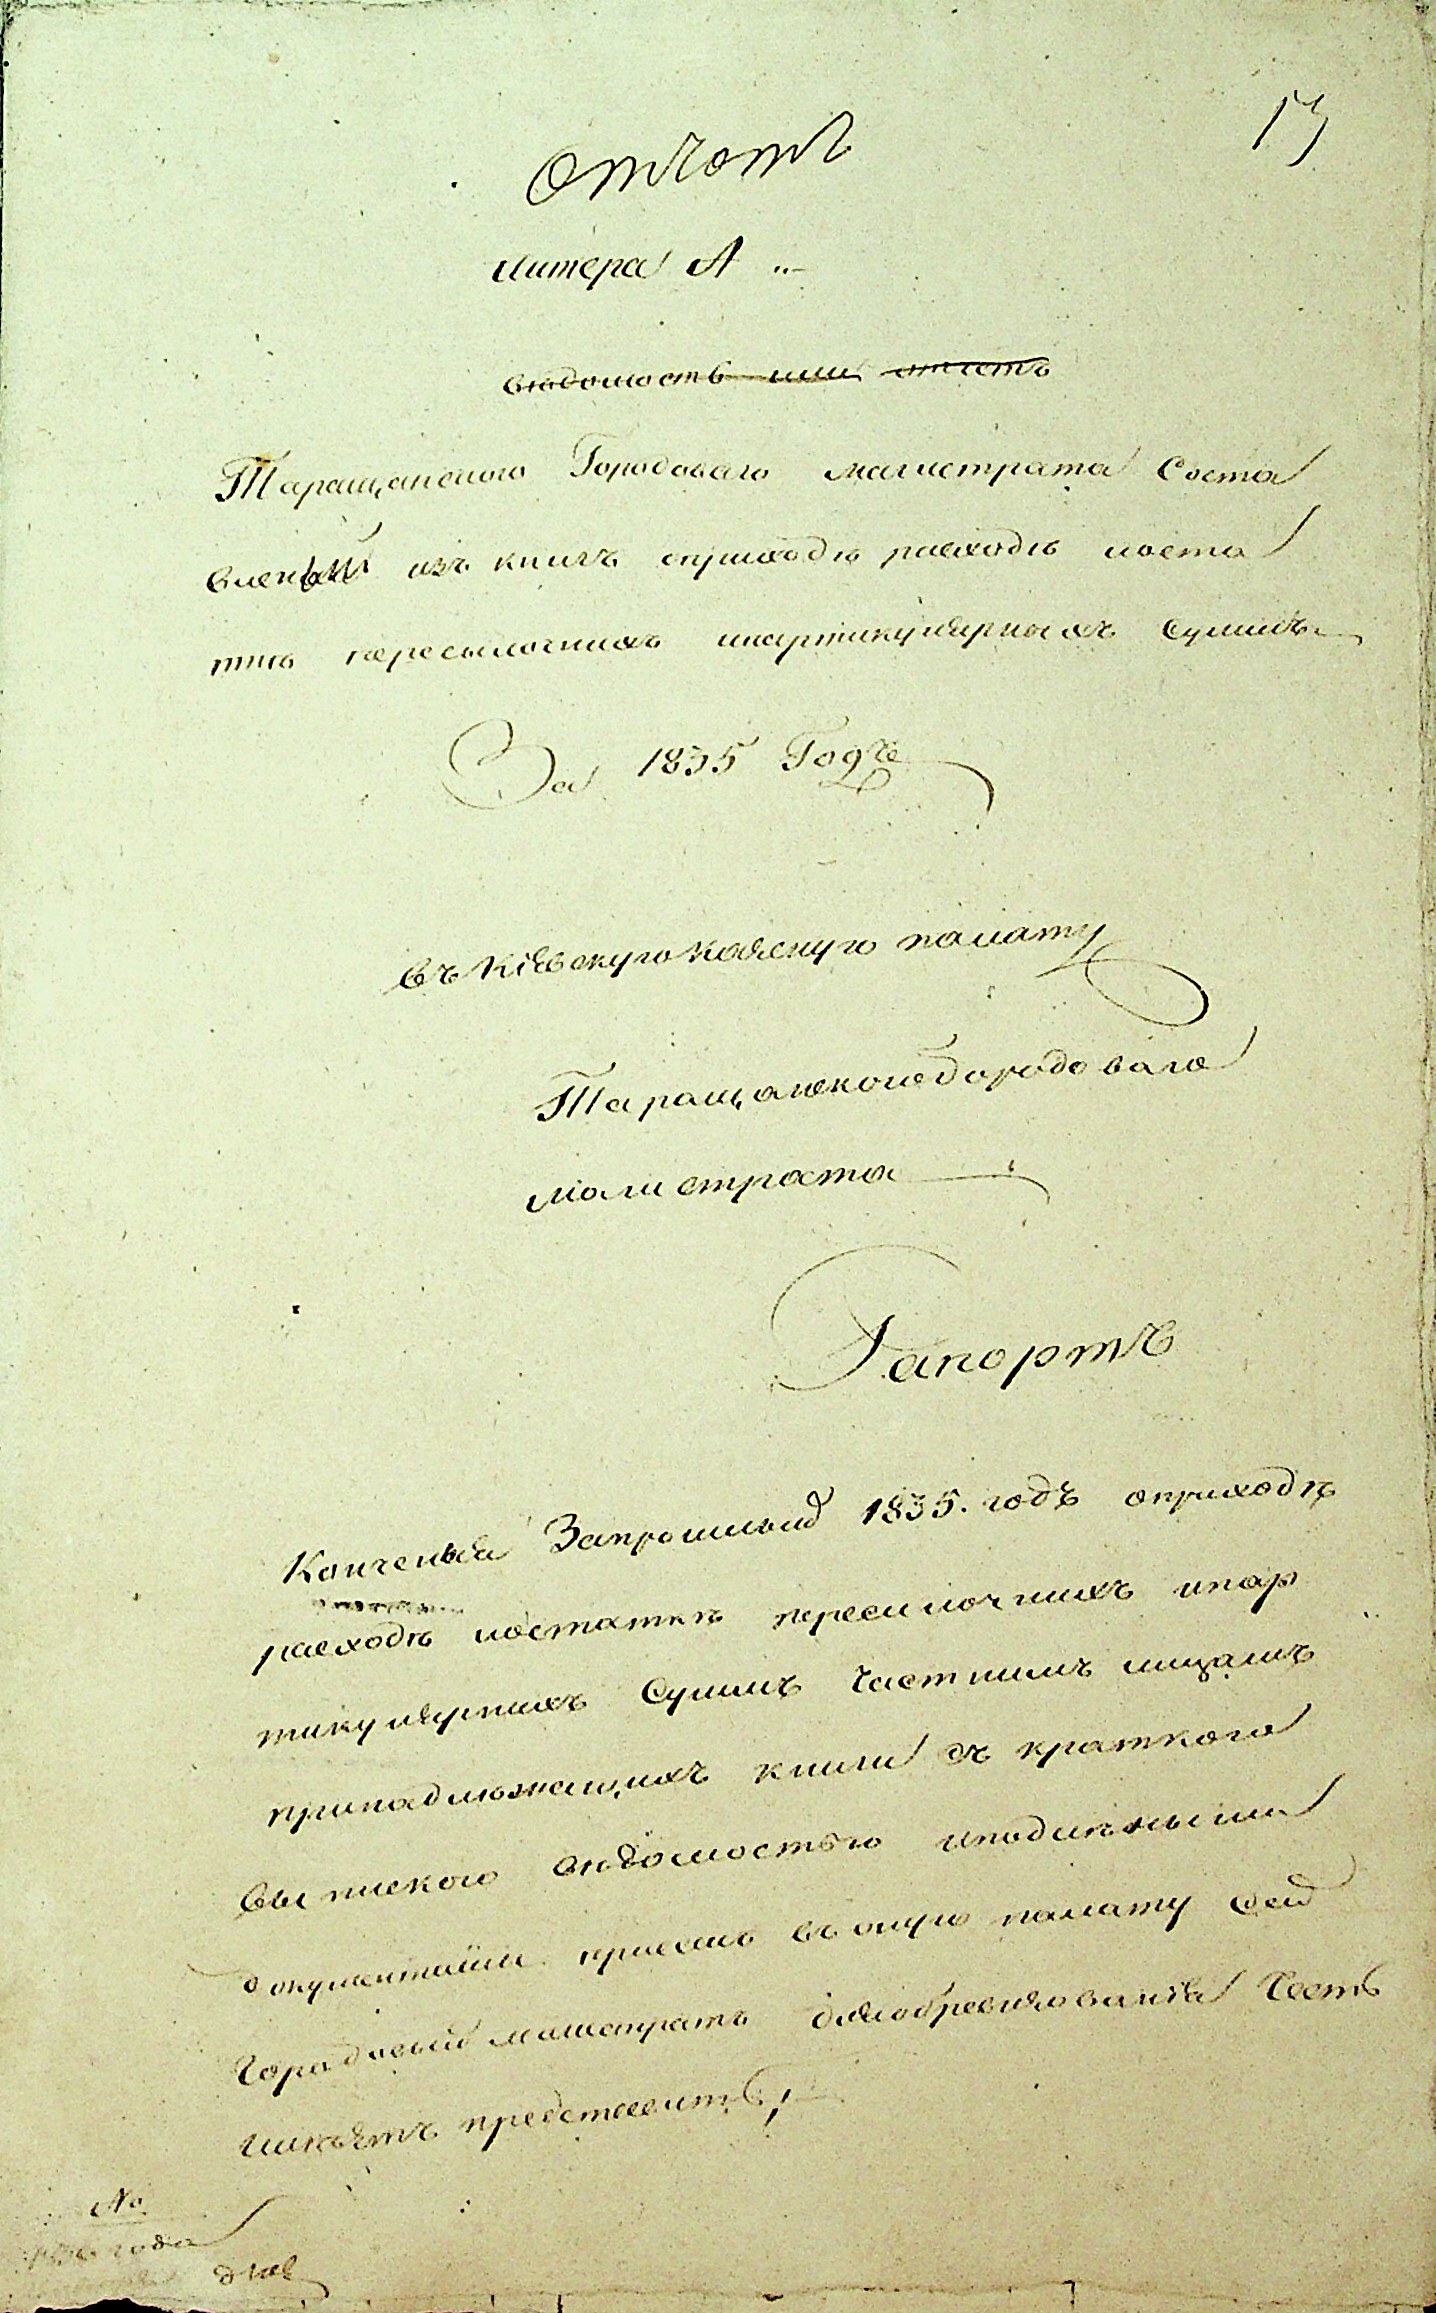 13
Отчотъ
литера А
вѣдомость или отчетъ
Таращанского Городоваго магистрата Соста
вленый изъ книгъ оприходѣ расходѣ иоста
ткѣ пересылочнихъ ипартикулярныхъ Суммъ
За 1835 Годъ
въ Кіевскую Козенную палату
Таращанского Городоваго
магистрата
Рапортъ
Конченыя Запрошлый 1835. годъ оприходѣ
расходѣ иостаткѣ пересилочнихъ ипар
тикулярнихъ Суммъ Частнимъ лицамъ
принадлежащихъ книги съ краткого
выпискою вѣдомостью иподлѣжными
документами приемъ въ оную палату сей
Городовый магистратъ дляобревизованія Честь
имѣетъ представить,
№
года
дня